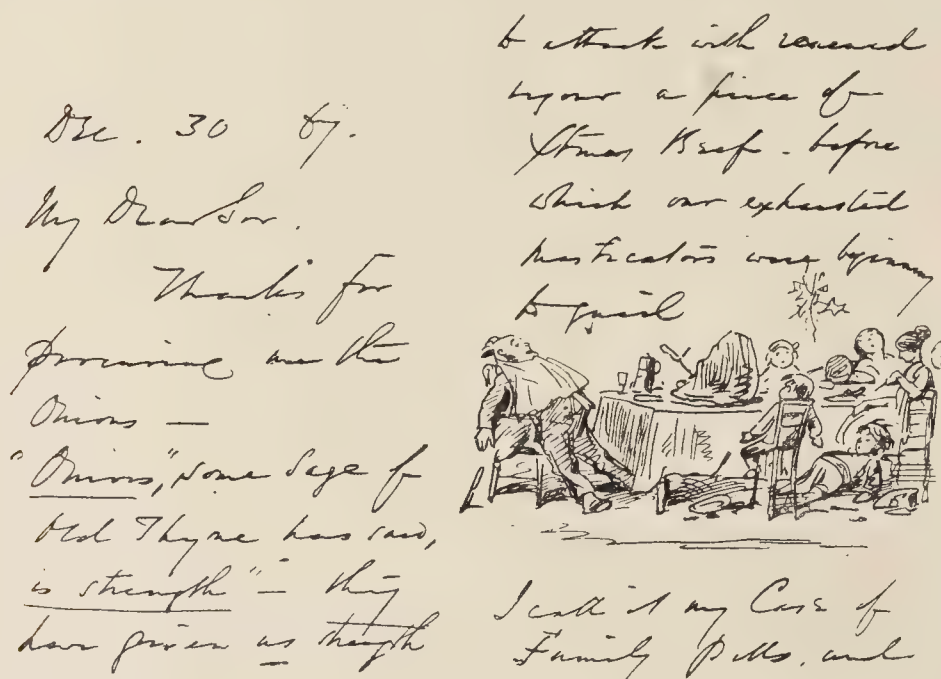 Dec. 30 67.
My Dear Sir.
Thanks for
procuring me the
Onions —
"Onions", some Sage of
Old Thyme has said,
is strength" — they
have given us strength
to attack with renewed
vigour a piece of
Xtmas Beef – before
which our exhausted
masticators were beginning
to quail
I call it my Case of
Family Pills, and